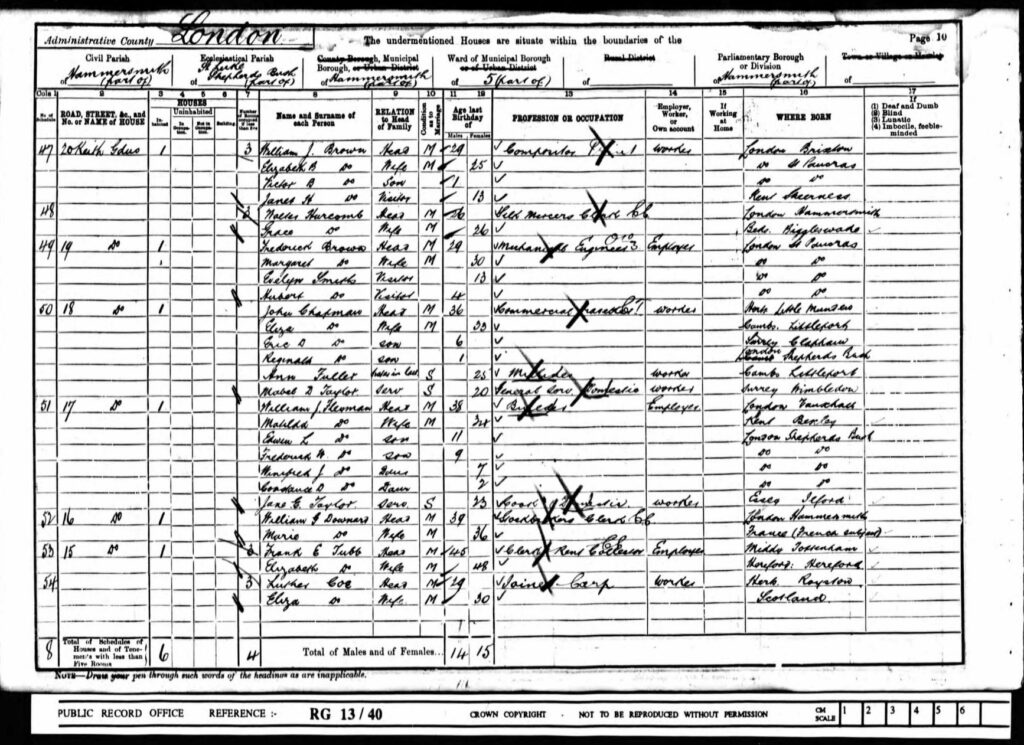 Administrative County London The undermentioned Houses are situate within the boundaries of the Page 10
Civil Parish Ecclesiastical Parish County Borough, Municipal Ward of Municipal Rural District Parliamentary Borough Town or Village or Hamlet
Borough, or Urban District Borough or of Urban District or Division
of Hammersmith (part of) of Shepherds Bush (part of) of Hammersmith (part of) of 5 (part of) of of Hammersmith (part of) of
Cols 1 2 3 4 5 6 7 8 9 10 11 12 13 14 15 16 17
No. of Schedule ROAD, STREET, &c., and No. or NAME of HOUSE HOUSES Inhabited Uninhabited In Occupation Not in Occupation Building Name and Surname of each Person RELATION to Head of Family Condition as to Marriage Age last Birthday of Males Females PROFESSION OR OCCUPATION Employer, Worker, or Own account If Working at Home WHERE BORN If (1) Deaf and Dumb (2) Blind (3) Lunatic (4) Imbecile, feeble-minded
47 20 Keith Gdns 1 3 William J. Brown Head M 29 Compositor worker London Brixton
Elizabeth B Do Wife M 25 Do St Pancras
Victor B Do Son 1 Do Do
Janet H Do Visitor 13 Kent Sheerness
48 Walter Hurcomb Head M 26 Silk Mercers Clerk London Hammersmith
Grace Do Wife M 26 Beds. Biggleswade
49 19 Do 1 Frederick Brown Head M 29 Engineer Employer London St Pancras
Margaret Do Wife M 30 Do Do
Evelyn Smith Visitor 13 Do Do
Hubert Do Visitor 4 Do Do
50 18 Do 1 John Chapman Head M 36 Commercial worker Herts Little
Eliza Do Wife M 33 Cambs. Littleport
Eric D Do Son 6 Surrey Clapham
Reginald Do Son 1 London Shepherds Bush
Ann Fuller Sister in law S 25 worker Cambs Littleport
Mabel D Taylor Serv S 20 General Serv Domestic worker Surrey Wimbledon
51 17 Do 1 William J. Head M 38 Builder Employer London Vauxhall
Matilda Do Wife M 34 Kent Bexley
Edwin L Do Son 11 London Shepherds Bush
Frederick W. Do Son 9 Do Do
Winifred J Do Daur 7 Do Do
Constance D Do Daur 2 Do Do
Jane E. Taylor Serv S 23 Cook Domestic worker Essex Ilford
52 16 Do 1 William G Downard Head M 39 Stockbrokers Clerk London Hammersmith
Marie Do Wife M 36 France (French subject)
53 15 Do 1 Frank E Tubb Head M 45 Clerk Rent Collector Employer Middx Tottenham
Elizabeth Do Wife M 48 Hereford: Hereford
54 3 Luther Coe Head M 29 Joiner Carp worker Herts Royston
Eliza Do Wife M 30 Scotland
8 Total of Schedules of Houses and of Tenements with less than Five Rooms 6 4 Total of Males and of Females... 14 15
NOTE—Draw your pen through such words of the headings as are inapplicable.
PUBLIC RECORD OFFICE REFERENCE :- RG 13 / 40 CROWN COPYRIGHT - NOT TO BE REPRODUCED WITHOUT PERMISSION CM SCALE 1 2 3 4 5 6